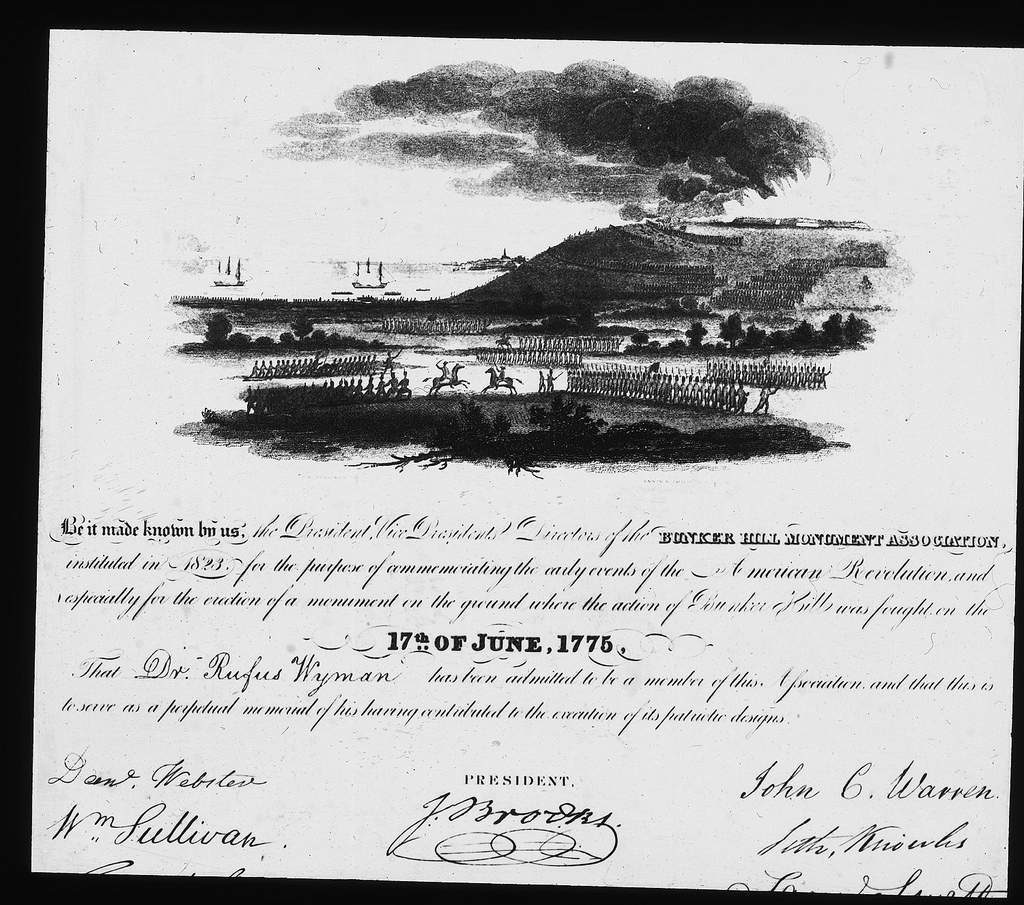 Be it made known by us, the President, Vice Presidents & Directors of the BUNKER HILL MONUMENT ASSOCIATION,
instituted in 1823, for the purpose of commemorating the early events of the American Revolution, and
especially for the erection of a monument on the ground where the action of Bunker Hill was fought, on the
17th OF JUNE, 1775,
That Dr. Rufus Wyman has been admitted to be a member of this Association, and that this is
to serve as a perpetual memorial of his having contributed to the execution of its patriotic designs.
PRESIDENT,
Danl. Webster
John C. Warren
J. Brooks.
Wm Sullivan.
Seth Knowles